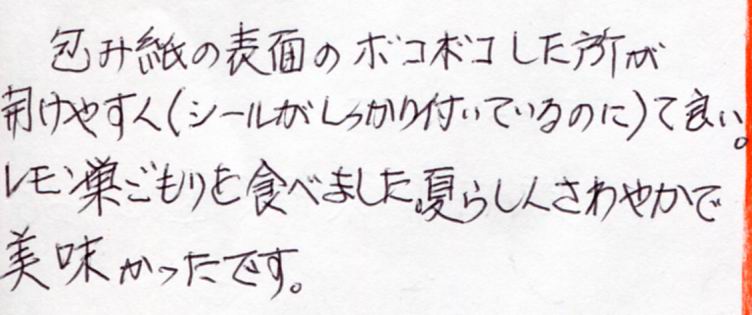 包み紙の表面のボコボコした所が
開けやすく(シールがしっかり付いているのに)て良い。
レモン巣ごもりを食べました。夏らしくさわやかで
美味かったです。